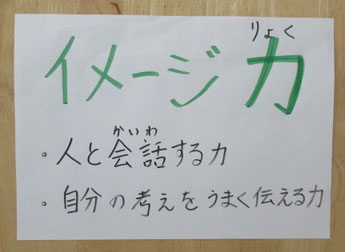 イメージ力
りょく
・人と会話する力
かいわ
・自分の考えをうまく伝える力